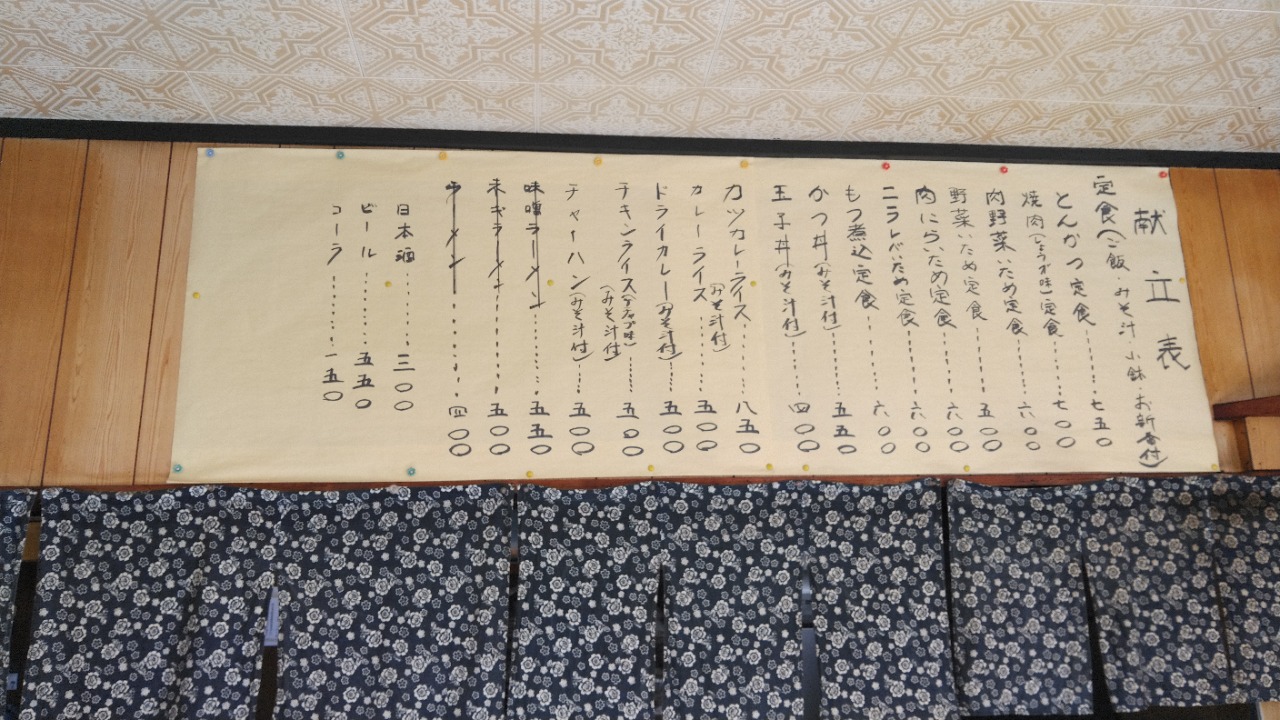 献立表
定食(ご飯 みそ汁 小鉢 お新香付)
とんかつ定食 七五〇
焼肉(しょうが味)定食 七〇〇
肉野菜いため定食 六〇〇
野菜いため定食 五〇〇
肉にらいため定食 六〇〇
ニラレバいため定食 六〇〇
もつ煮込定食 六〇〇
かつ丼(みそ汁付) 五五〇
玉子丼(みそ汁付) 四〇〇
カツカレーライス(みそ汁付) 八五〇
カレーライス 五〇〇
ドライカレー(みそ汁付) 五〇〇
チキンライス(みそ汁付) 五〇〇
チャーハン(みそ汁付) 五〇〇
味噌ラーメン 五五〇
ネギラーメン 五〇〇
ラーメン 四〇〇
日本酒 三〇〇
ビール 五五〇
コーラ 一五〇